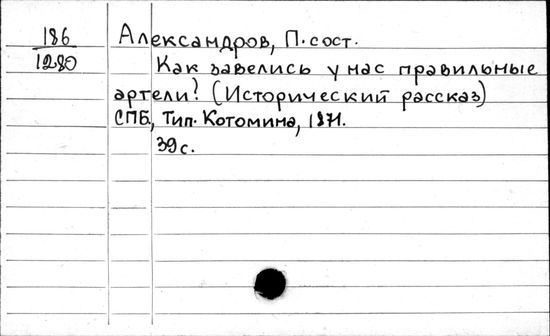 186
1280
Александров, П. сост.
Как завелись у нас правильные
артели? (Исторический рассказ)
СПБ, Тип. Котомина, 1871.
39 с.